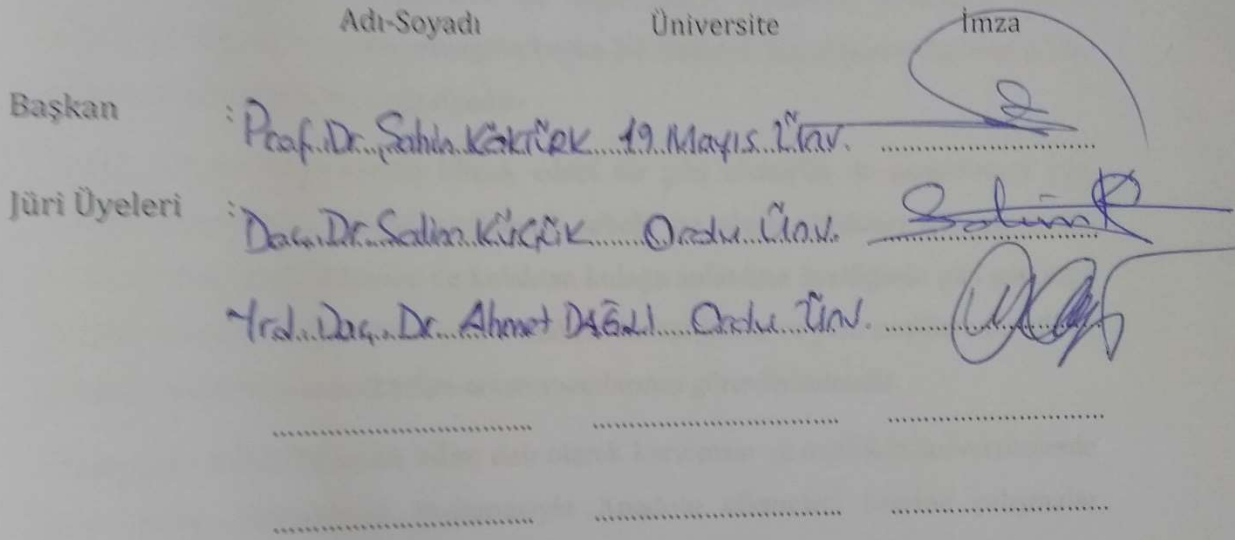 Adı-Soyadı Üniversite İmza
Başkan : Prof. Dr. Şahin KÖKTÜRK 19 Mayıs Ünv.
Jüri Üyeleri : Doç. Dr. Salim KÜÇÜK Ordu Ünv. Salim K
Yrd. Doç. Dr. Ahmet DAĞLI Ordu Ünv.